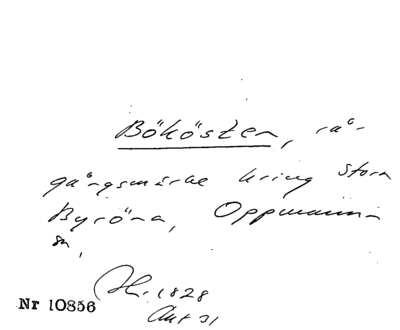 Bökösten, rå-
gångsmärke kring Stora
Byröna, Oppmanna
sn,
H. 1828
Akt 31
Nr 10856